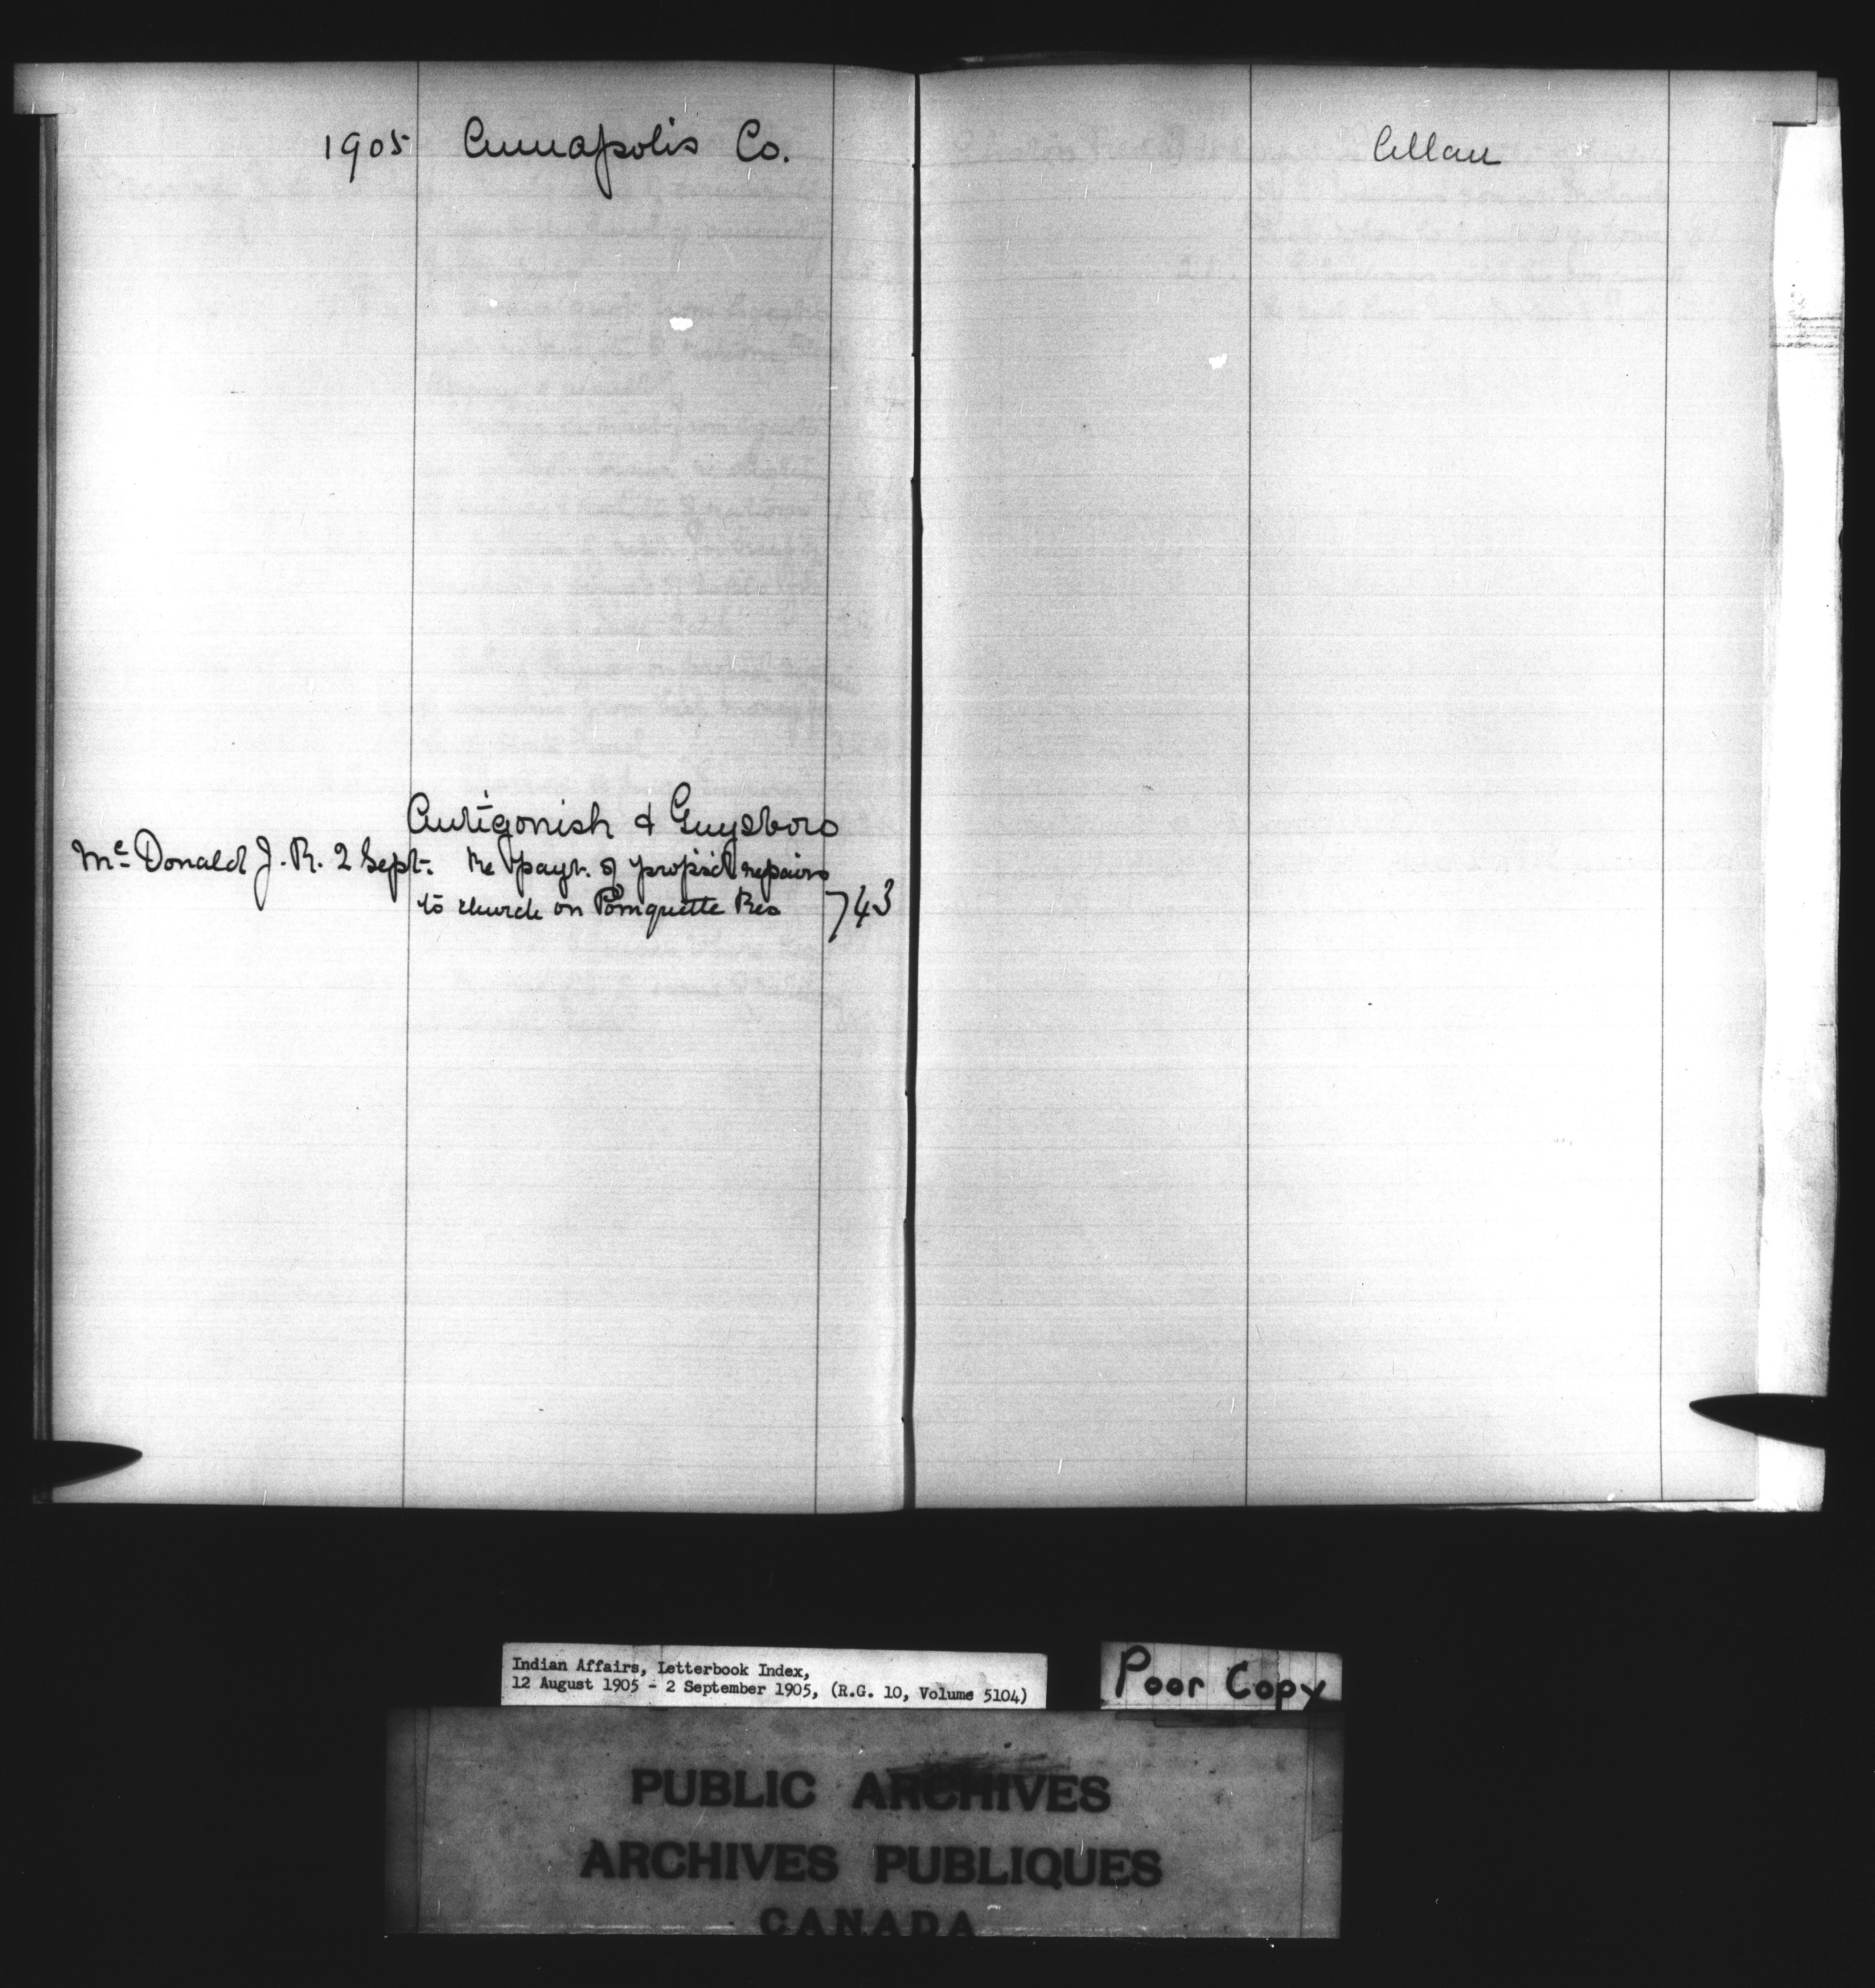 1905 Annapolis Co.
Antigonish & Guysboro
Mc Donald J. R. 2 Sept. Re payt. of propsd repairs
to church on Pomquette Res 743
Allan
Indian Affairs, Letterbook Index,
12 August 1905 - 2 September 1905, (R.G. 10, Volume 5104)
Poor Copy
PUBLIC ARCHIVES
ARCHIVES PUBLIQUES
CANADA